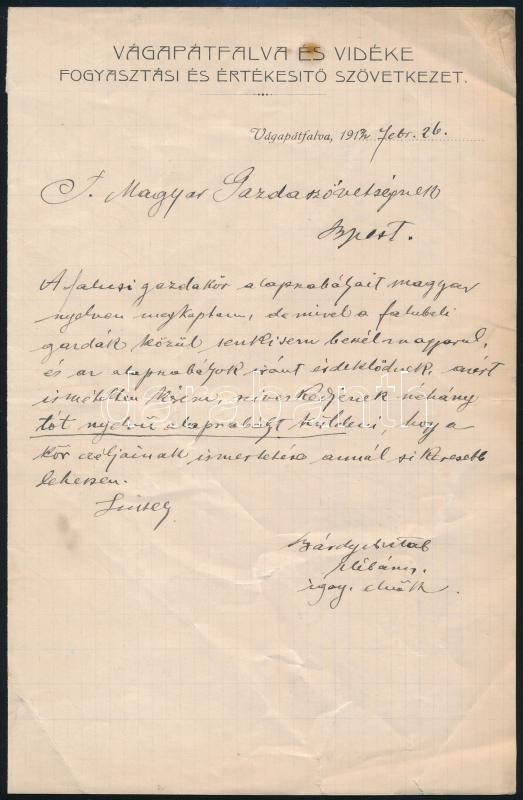 VÁGAPÁTFALVA ÉS VIDÉKE
FOGYASZTÁSI ÉS ÉRTÉKESITŐ SZÖVETKEZET.
Vágapátfalva, 1912 febr. 26.
T. Magyar Gazdaszövetségnek
Bpest.
A falusi gazdakör alapszabályait magyar
nyelven megkaptam, de mivel a falubeli
gazdák közül senkisem beszél magyarul,
és az alapszabályok iránt érdeklődnek, azért
ismételten kérem, sziveskedjenek néhány
tót nyelvü alapszabályt küldeni, hogy a
kör céljainak ismertetése annál sikeresebb
lehessen.
darabanth
plébános.
igazg. elnök